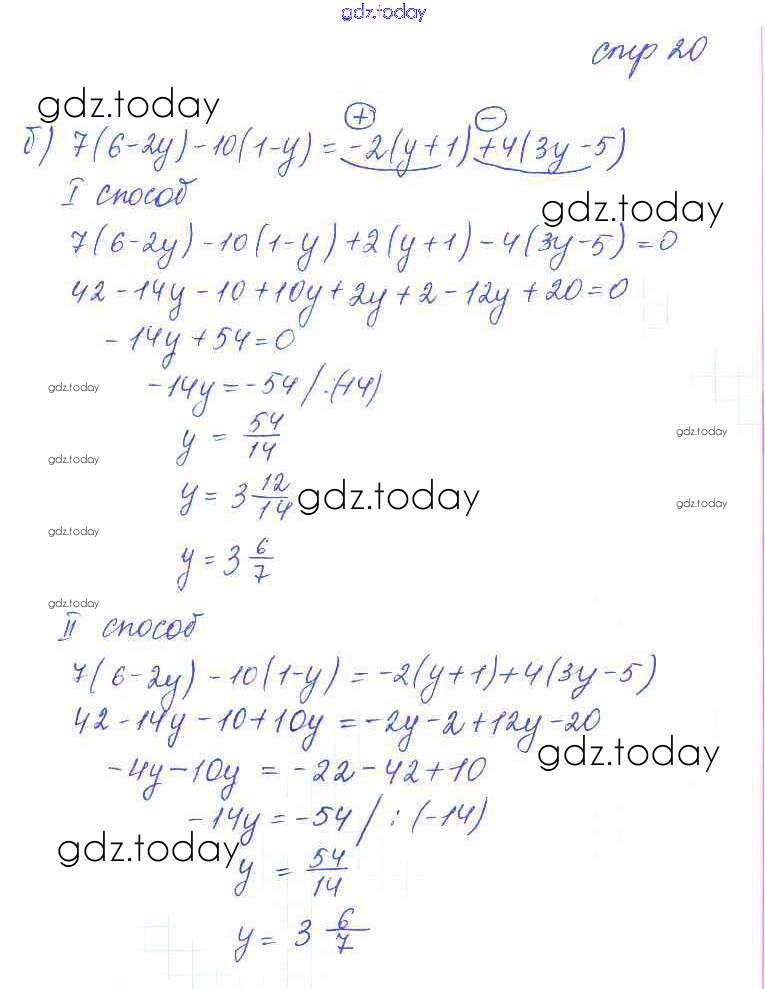 gdz.today
стр 20
gdz.today
б) 7(6-2y)-10(1-y)=-2(y+1)+4(3y-5)
+ -
I способ
gdz.today
7(6-2y)-10(1-y)+2(y+1)-4(3y-5)=0
42-14y-10+10y+2y+2-12y+20=0
-14y+54=0
gdz.today
-14y=-54/:(-14)
y = 54/14
gdz.today
gdz.today
y = 3 12/14
gdz.today
gdz.today
gdz.today
y = 3 6/7
gdz.today
II способ
7(6-2y)-10(1-y)=-2(y+1)+4(3y-5)
42-14y-10+10y=-2y-2+12y-20
gdz.today
-4y-10y = -22-42+10
-14y=-54/:(-14)
gdz.today
y = 54/14
y = 3 6/7